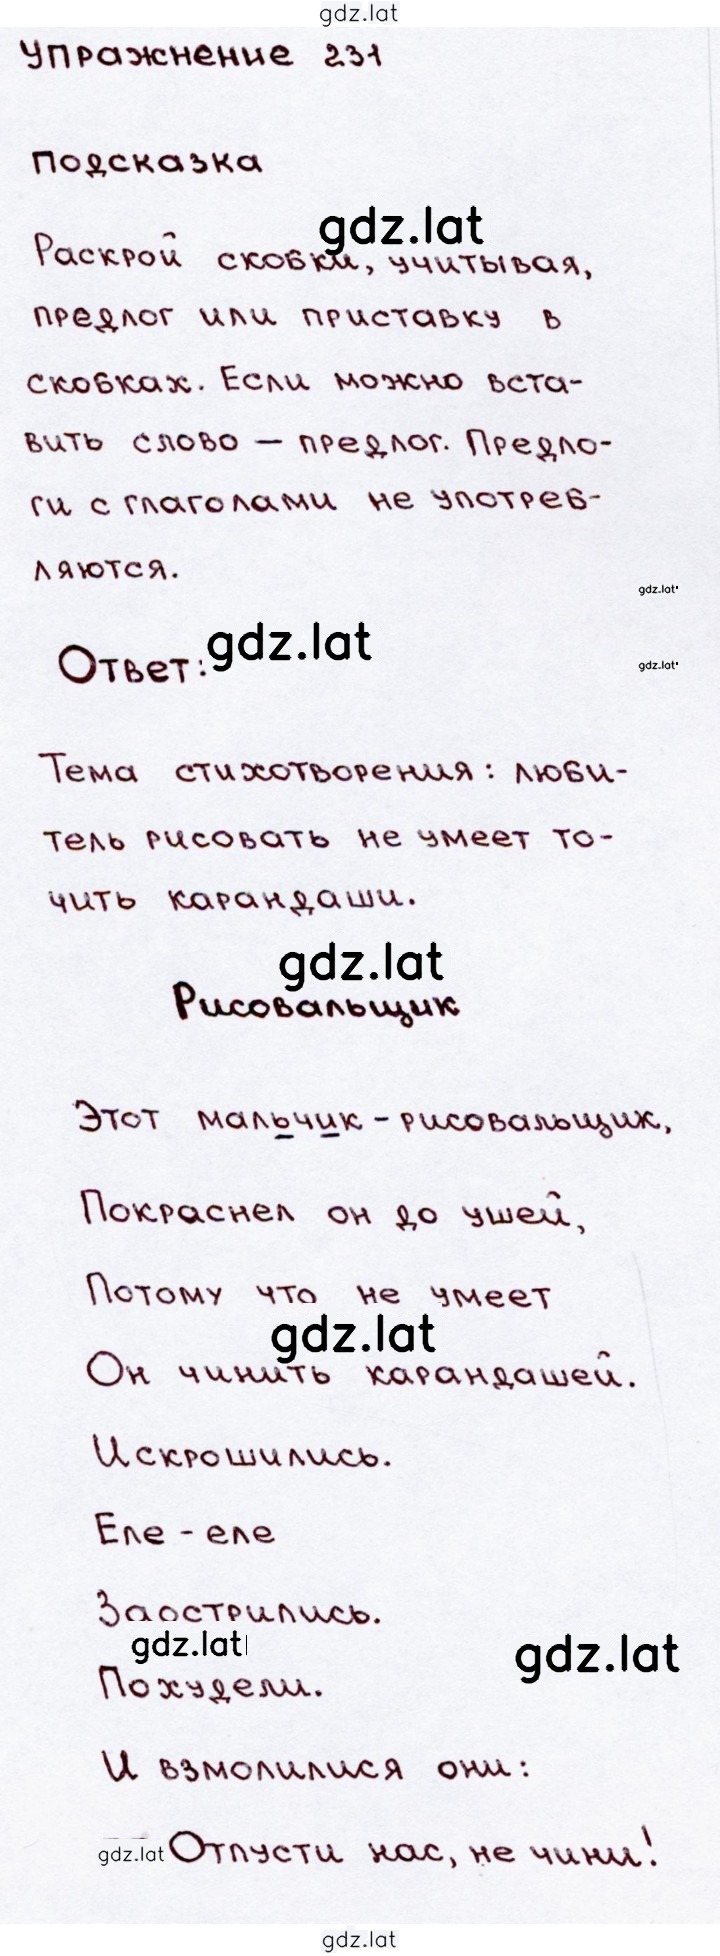 gdz.lat
Упражнение 231
подсказка
gdz.lat
Раскрой скобки, учитывая,
предлог или приставку в
скобках. Если можно вста-
вить слово – предлог. Предло-
ги с глаголами не употреб-
ляются.
gdz.lat
gdz.lat
Ответ:
gdz.lat
Тема стихотворения: люби-
тель рисовать не умеет то-
чить карандаши.
gdz.lat
Рисовальщик
Этот мальчик - рисовальщик,
Покраснел он до ушей,
Потому что не умеет
gdz.lat
Он чинить карандашей.
Искрошились.
Еле - еле
Заострились.
gdz.lat
gdz.lat
Похудели.
И взмолилися они:
gdz.lat
Отпусти нас, не чини!
gdz.lat